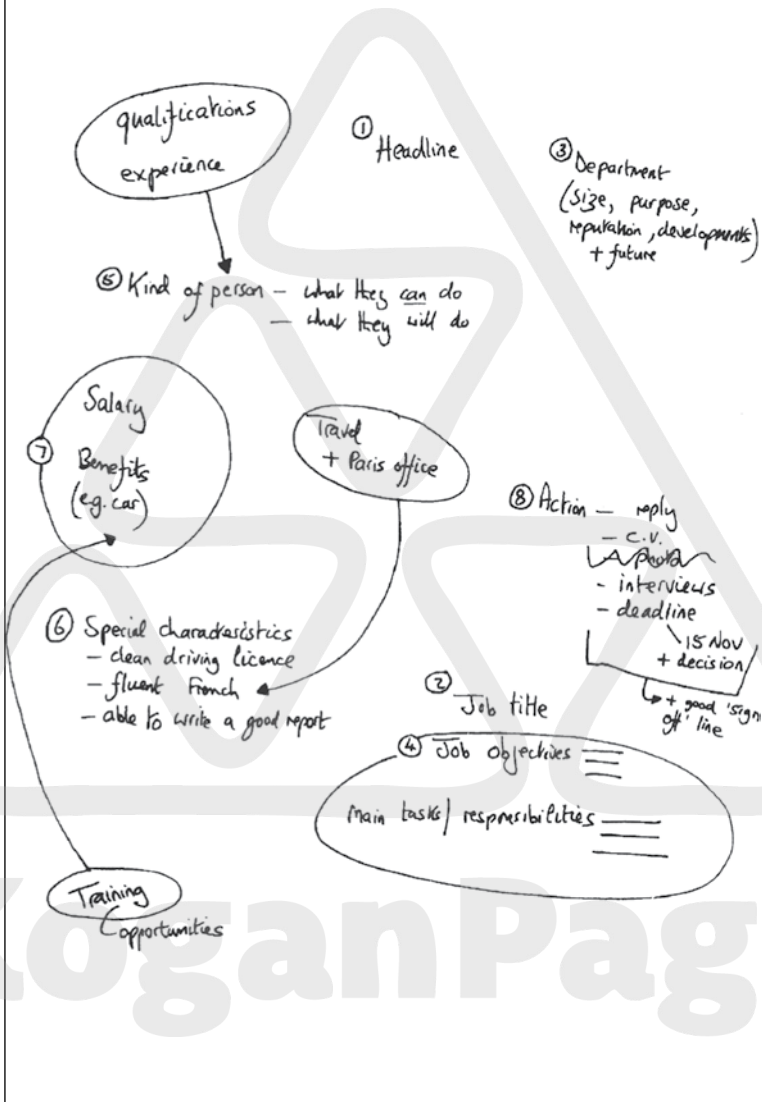 qualifications
experience
① Headline
③ Department
(size, purpose,
reputation, developments)
+ future
⑤ Kind of person – what they can do
– what they will do
Salary
⑦
Benefits
(e.g. car)
Travel
+ Paris office
⑧ Action – reply
– C.V.
- interviews
- deadline
15 Nov
+ decision
+ good 'sign
off' line
⑥ Special characteristics
– clean driving licence
– fluent French
– able to write a good report
② Job title
④ Job objectives
Main tasks/ responsibilities
Training
Opportunities
KoganPag